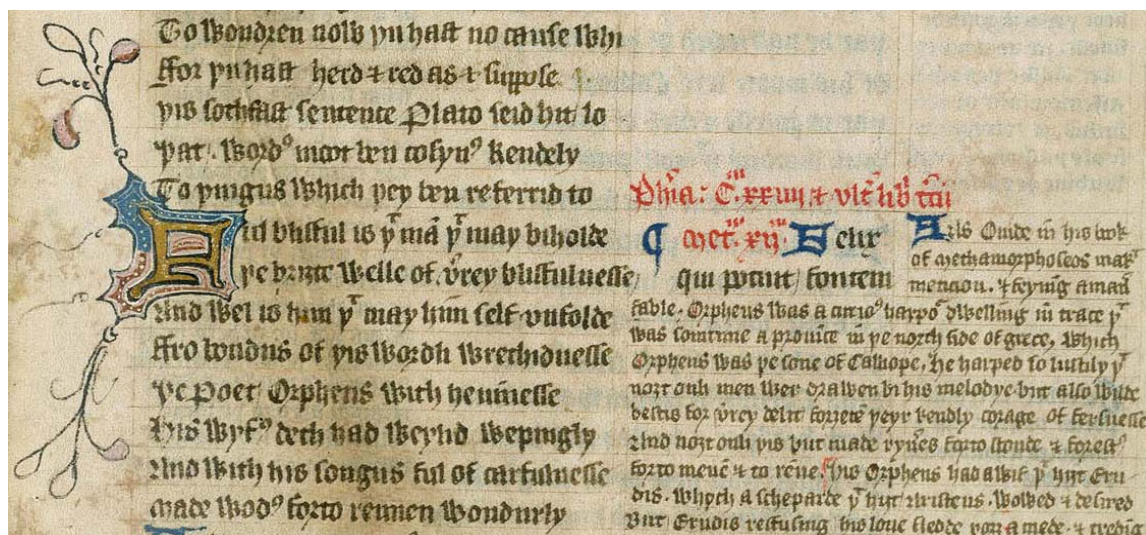 To wondren now þu hast no cause whi
ffor þu hast herd & red as I suppose
þis sothfast sentence Plato seid hit lo
þat wordꝰ moot ben cosynꝰ kendely
To þingus which þey ben referrid to
Ful blisful is þͭ mā þͭ may biholde
þe briȝte welle of v̓rey blisfulnesse
And wel is him þͭ may him self vnfolde
ffro bondus of þis wordli wrechidnesse
þe Poet Orpheus with heuinesse
his wyfꝰ deth had weylid wepingly
And with his songus ful of carfulnesse
made wodꝰ forto rennen wondurly
Ph̄ia: xxiiij & vlt̄
¶ met̄. xij. Felix
qui potuit fontem
Arls Ouide in his book
of methamorphoseos mak̓
mencion. & feyning a maner
fable. Orpheus was a harpoꝰ dwelling in trace þͭ
was somtime a prouīce in þe north side of grece, which
Orpheus was þe sone of Caliope, he harped so lustily þͭ
noȝt onli men wer drawen bi his melodye but also wilde
bestis for v̓rey delit forȝetē þeyr kendly corage of fersnesse
And noȝt onli þis but made ryūes forto stonde & forestꝰ
forto meuē & to rēne. þis Orpheus had a wif þͭ hiȝt Eru-
dis. whych a scheparde þͭ hiȝt Aristeus. wowed & desired
But Erudis refusing his loue fledde a mede. & treding